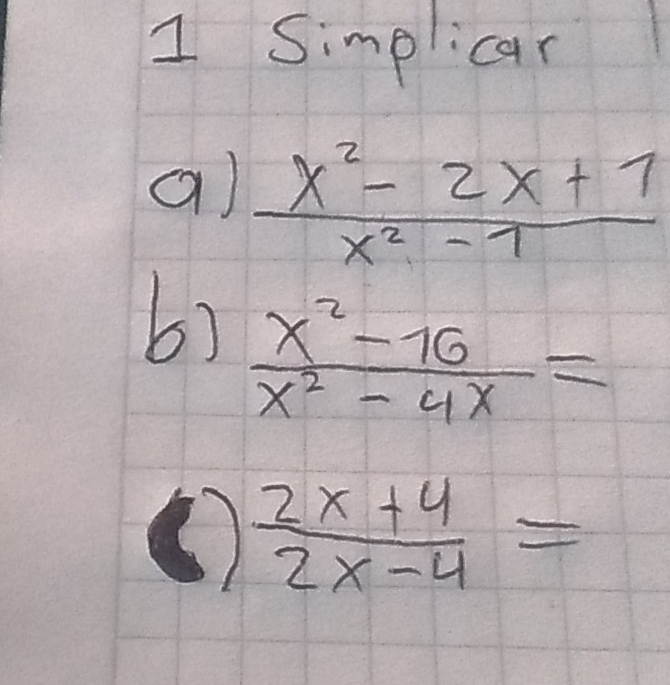 1 Simplicar
a) x² - 2x + 1
x² - 1
b) x² - 16
x² - 4x =
c) 2x + 4
2x - 4 =